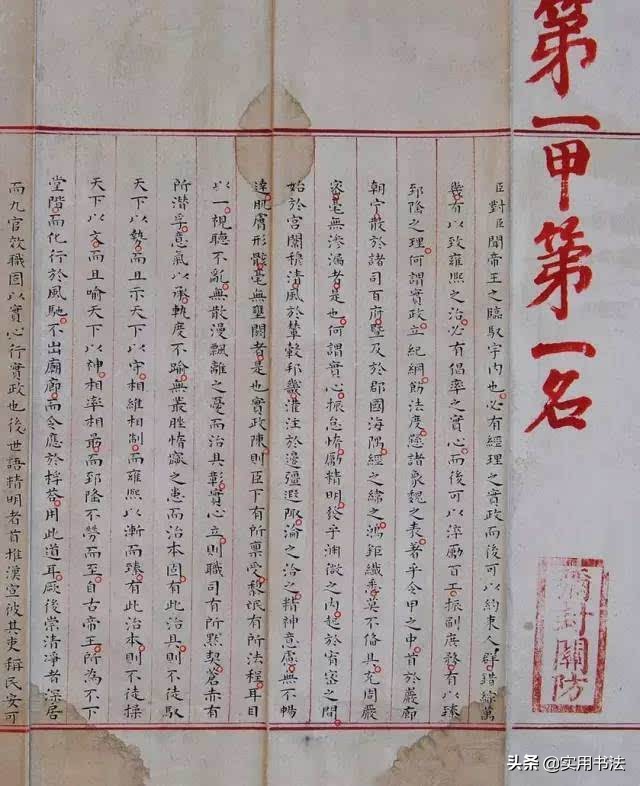 第一甲第一名
彌封關防
臣對臣聞帝王之臨馭宇內也必有經理之實政而後可以約束人群錯綜萬
幾有以致雍熙之治必有倡率之實心而後可以淬勵百工振刷庶務有以臻
郅隆之理何謂實政立紀綱飭法度懸諸象魏之表著乎令甲之中首於巖廊
朝宁散於諸司百府暨及於郡國海隅經之緯之鴻鉅纖悉莫不備具充周嚴
密毫無滲漏者是也何謂實心振怠惰勵精明發乎淵微之內起於宥密之間
始於宮闈穆清風於輦轂邦畿灌注於邊疆遐陬淪之洽之精神意慮無不暢
達肌膚形骸毫無壅閼者是也實政陳則臣下有所稟受黎氓有所法程耳目
以一視聽不亂無散漫飄離之憂而治具彰實心立則職司有所默契蒼赤有
所潛孚意氣以承軌度不踰無叢脞惰窳之患而治本固有此治具則不徒馭
天下以勢而且示天下以守相維相制而雍熙以漸而臻有此治本則不徒操
天下以文而且喻天下以神相率相勖而郅隆不勞而至自古帝王所為不下
堂階而化行於風馳不出廟廊而令應於桴答用此道耳厥後崇清凈者深居
而九官效職固以實心行實政也後世語精明者首推漢宣彼其吏稱民安可
头条 @实用书法